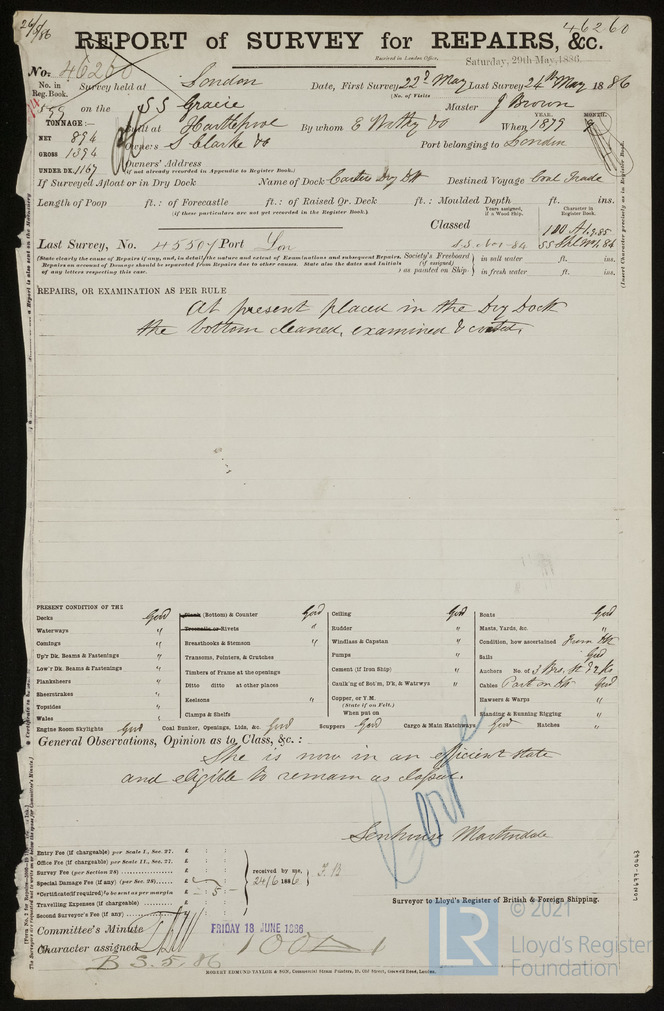 26/5/86
46260
REPORT of SURVEY for REPAIRS, &c.
Received in London Office, Saturday, 29th May, 1886.
No. 46260
No. in Reg. Book. Survey held at London Date, First Survey 22d May Last Survey 24th May 1886
(No. of Visits
599 on the SS Gracie Master J Brown
TONNAGE:— Built at Hartlepool By whom E Withy & Co When 1879 YEAR. MONTH.
NET 894 Owners S Clarke & Co Port belonging to London
GROSS 1394
UNDER DK. 1167 Owners' Address
(if not already recorded in Appendix to Register Book.)
If Surveyed Afloat or in Dry Dock Name of Dock Dry Dk Destined Voyage Coal Trade
Length of Poop ft.: of Forecastle ft.: of Raised Qr. Deck ft.: Moulded Depth ft. ins.
(if these particulars are not yet recorded in the Register Book.)
Years assigned, if a Wood Ship. Character in Register Book.
Classed 100 A1
Last Survey, No. 45507 Port Lon
(State clearly the cause of Repairs if any, and, in detail, the nature and extent of Examinations and subsequent Repairs.
Repairs on account of Damage should be separated from Repairs due to other causes. State also the dates and Initials
of any letters respecting this case.
Society's Freeboard (if assigned) as painted on Ship. in salt water ft. ins.
in fresh water ft. ins.
(Insert Character precisely as in Register Book.)
REPAIRS, OR EXAMINATION AS PER RULE
At present placed in the Dry Dock
the bottom cleaned, examined & coated.
PRESENT CONDITION OF THE
Decks Good
Waterways "
Comings "
Up'r Dk. Beams & Fastenings "
Low'r Dk. Beams & Fastenings "
Planksheers "
Sheerstrakes "
Topsides "
Wales "
Plank (Bottom) & Counter Good
Treenails or Rivets "
Breasthooks & Stemson "
Transoms, Pointers, & Crutches
Timbers of Frame at the openings
Ditto ditto at other places
Keelsons "
Clamps & Shelfs
Ceiling Good
Rudder "
Windlass & Capstan "
Pumps "
Cement (if Iron Ship) "
Caulk'ng of Bot'm, D'k, & Watrwys "
Copper, or Y.M.
(State if on Felt.)
When put on
Boats Good
Masts, Yards, &c. "
Condition, how ascertained From Dk
Sails Good
Anchors No. of 3 Brs, St & 2 Ks
Cables Part on Dk Good
Hawsers & Warps "
Standing & Running Rigging "
Engine Room Skylights Good Coal Bunker, Openings, Lids, &c. Good Scuppers Good Cargo & Main Hatchways Good Hatches "
General Observations, Opinion as to Class, &c.:
She is now in an efficient state
and eligible to remain as classed.
Senhouse Martindale
Surveyor to Lloyd's Register of British & Foreign Shipping.
Entry Fee (if chargeable) per Scale I., Sec. 27. £ : :
Office Fee (if chargeable) per Scale II., Sec. 27. £ : :
Survey Fee (per Section 28) £ : :
Special Damage Fee (if any) (per Sec. 28) £ : :
Certificate (if required) to be sent as per margin £ : 5 :
Travelling Expenses (if chargeable) £ : :
Second Surveyor's Fee (if any) £ : :
received by me,
24/6 1886
Committee's Minute FRIDAY 18 JUNE 1886
Character assigned 100A1
B S. 5, 86
ROBERT EDMUND TAYLOR & SON, Commercial Steam Printers, 19, Old Street, Goswell Road, London.
© 2021
LR
Lloyd's Register
Foundation